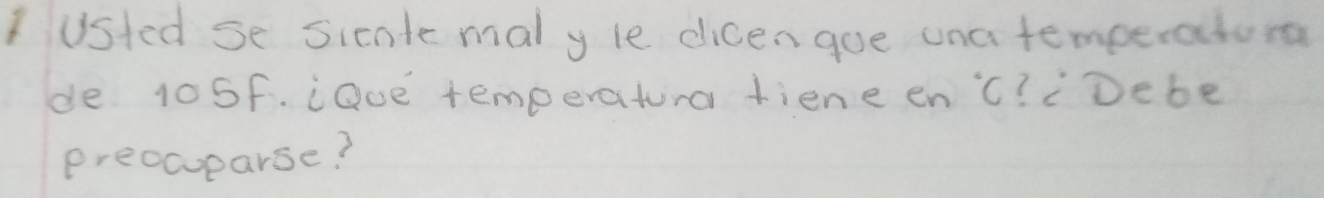 1 Usted se siente mal y le dicen que una temperatura
de 105f. ¿Qué temperatura tiene en °C? ¿Debe
preocuparse?